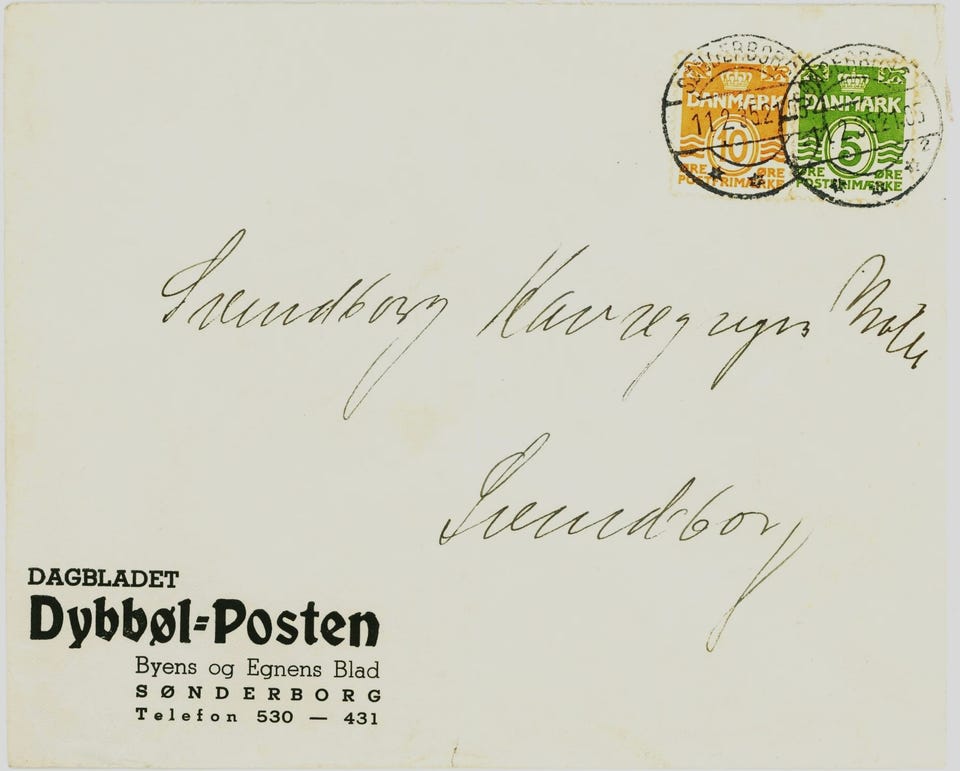 SØNDERBORG
DANMARK
10
ØRE ØRE
POSTFRIMÆRKE
SØNDERBORG
DANMARK
5
ØRE ØRE
POSTFRIMÆRKE
Svendborg Havregryns Mølle
Svendborg
DAGBLADET
Dybbøl=Posten
Byens og Egnens Blad
SØNDERBORG
Telefon 530 — 431